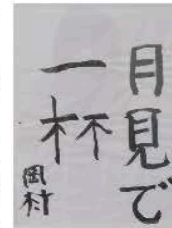 月見で
一杯
岡村